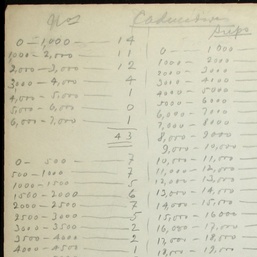 0 - 1,000 — 14
1000 - 2,000 — 11
2,000 - 3,000 — 12
3,000 - 4,000 — 4
4,000 - 5,000 — 1
5,000 - 6,000 — 0
6,000 - 7,000 — 1
43
0 - 500 — 7
500 - 1000 — 7
1000 - 1500 — 5
1500 - 2000 — 6
2000 - 2500 — 7
2500 - 3000 — 5
3000 - 3500 — 2
3500 - 4000 — 2
4000 - 4500 — 1
0 - 1000
1000 - 2000
2000 - 3000
3000 - 4000
4000 - 5000
5000 - 6000
6,000 - 7000
7,000 - 8000
8,000 - 9000
9,000 - 10,000
10,000 - 11,000
11,000 - 12,000
12,000 - 13,000
13,000 - 14,000
14,000 - 15,000
15,000 - 16,000
16,000 - 17,000
17,000 - 18,000
18,000 - 19,000